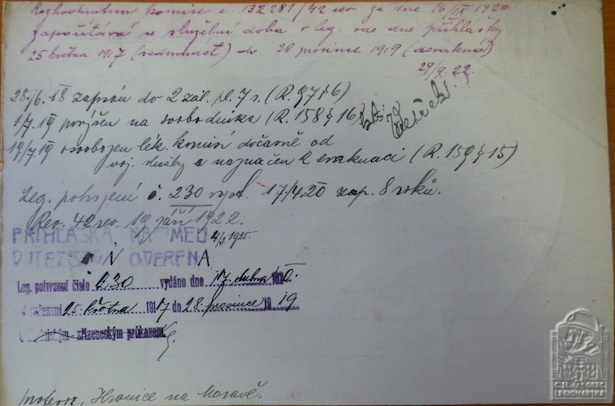 Rozhodnutím komise č 132281/42 sev ze dne 16/IX 1920
započítává se služební doba v leg. ode dne přihlášky
25 května 1917 (sedmnáct) do 28 prosince 1919 (devatenáct)
29/9.22.
28./6.18 zapsán do 2 zál. pl. 7 s. (R. 97 § 6)
1/7.19 povýšen na svobodníka (R. 158 § 16)
19/7.19 osvobozen lék. komisí dočasně od
voj. služby a naznačen k evakuaci (R. 159 § 15)
Leg. potvrzení č. 230 vyst. 17/4.20 zap. 8 roků.
Rev. 42 rev. 19 září 1922.
PŘIHLÁŠKA PAMĚŤ
VÍTĚZ OVĚŘENA
Leg. potvrzení číslo 230 vydáno dne 17. dubna 1920.
25. května 1917 do 28. prosince 1919
zřízeneckým průkazem.
Hranice na Moravě.
ČSL. OBEC
LEGIONÁŘSKÁ